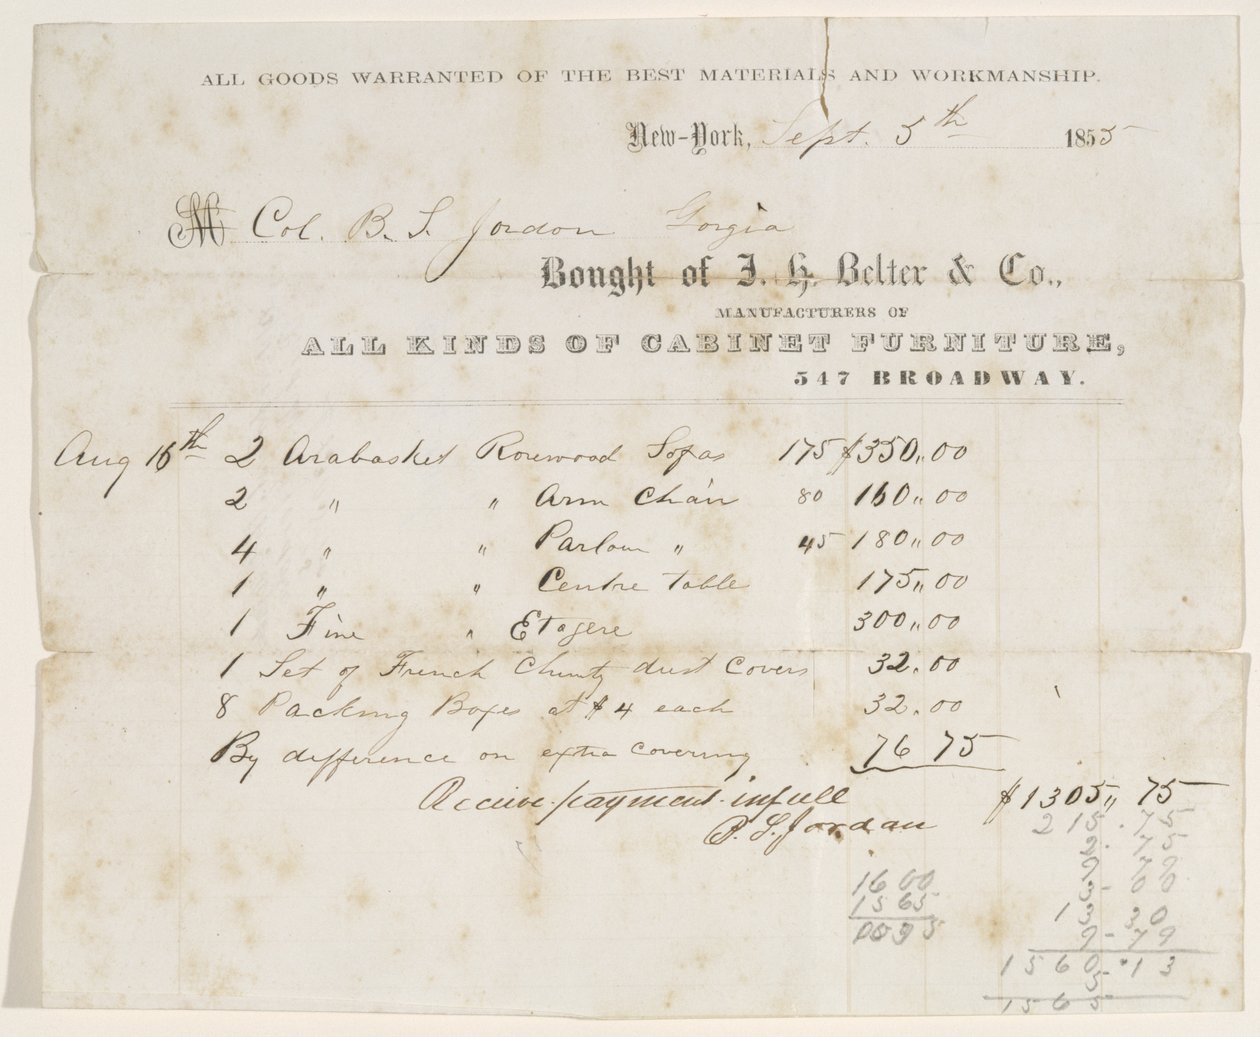 ALL GOODS WARRANTED OF THE BEST MATERIALS AND WORKMANSHIP.
New-York, Sept. 5th 1855
M Col. B. S. Jordon Gorgia
Bought of J. H. Belter & Co.,
MANUFACTURERS OF
ALL KINDS OF CABINET FURNITURE,
547 BROADWAY.
Aug 16th 2 Arabasket Rosewood Sofas 175 $350,,00
2 " " Arm Chair 80 160,,00
4 " " Parlour " 45 180,,00
1 " " Centre table 175,,00
1 Fine " Etagere 300,,00
1 Set of French Chintz dust Covers 32.00
8 Packing Boxes at $4 each 32.00
By difference on extra covering 76 75
Receive payment in full $1305,,75
Jordan
215.75
2.75
1600
1565
3-00
13 30
9-79
1560.13
1565